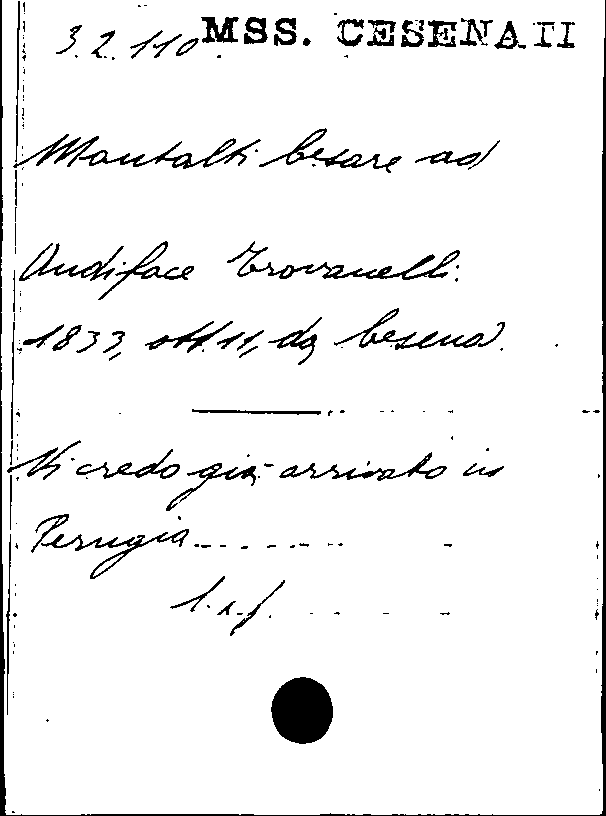 3.2.110 MSS. CESENATI
Montalti Cesare ad
Audiface Trovanelli.
1833, ott. 11, da Cesena.
Vi credo già arrivato in
Perugia
l. a. f.